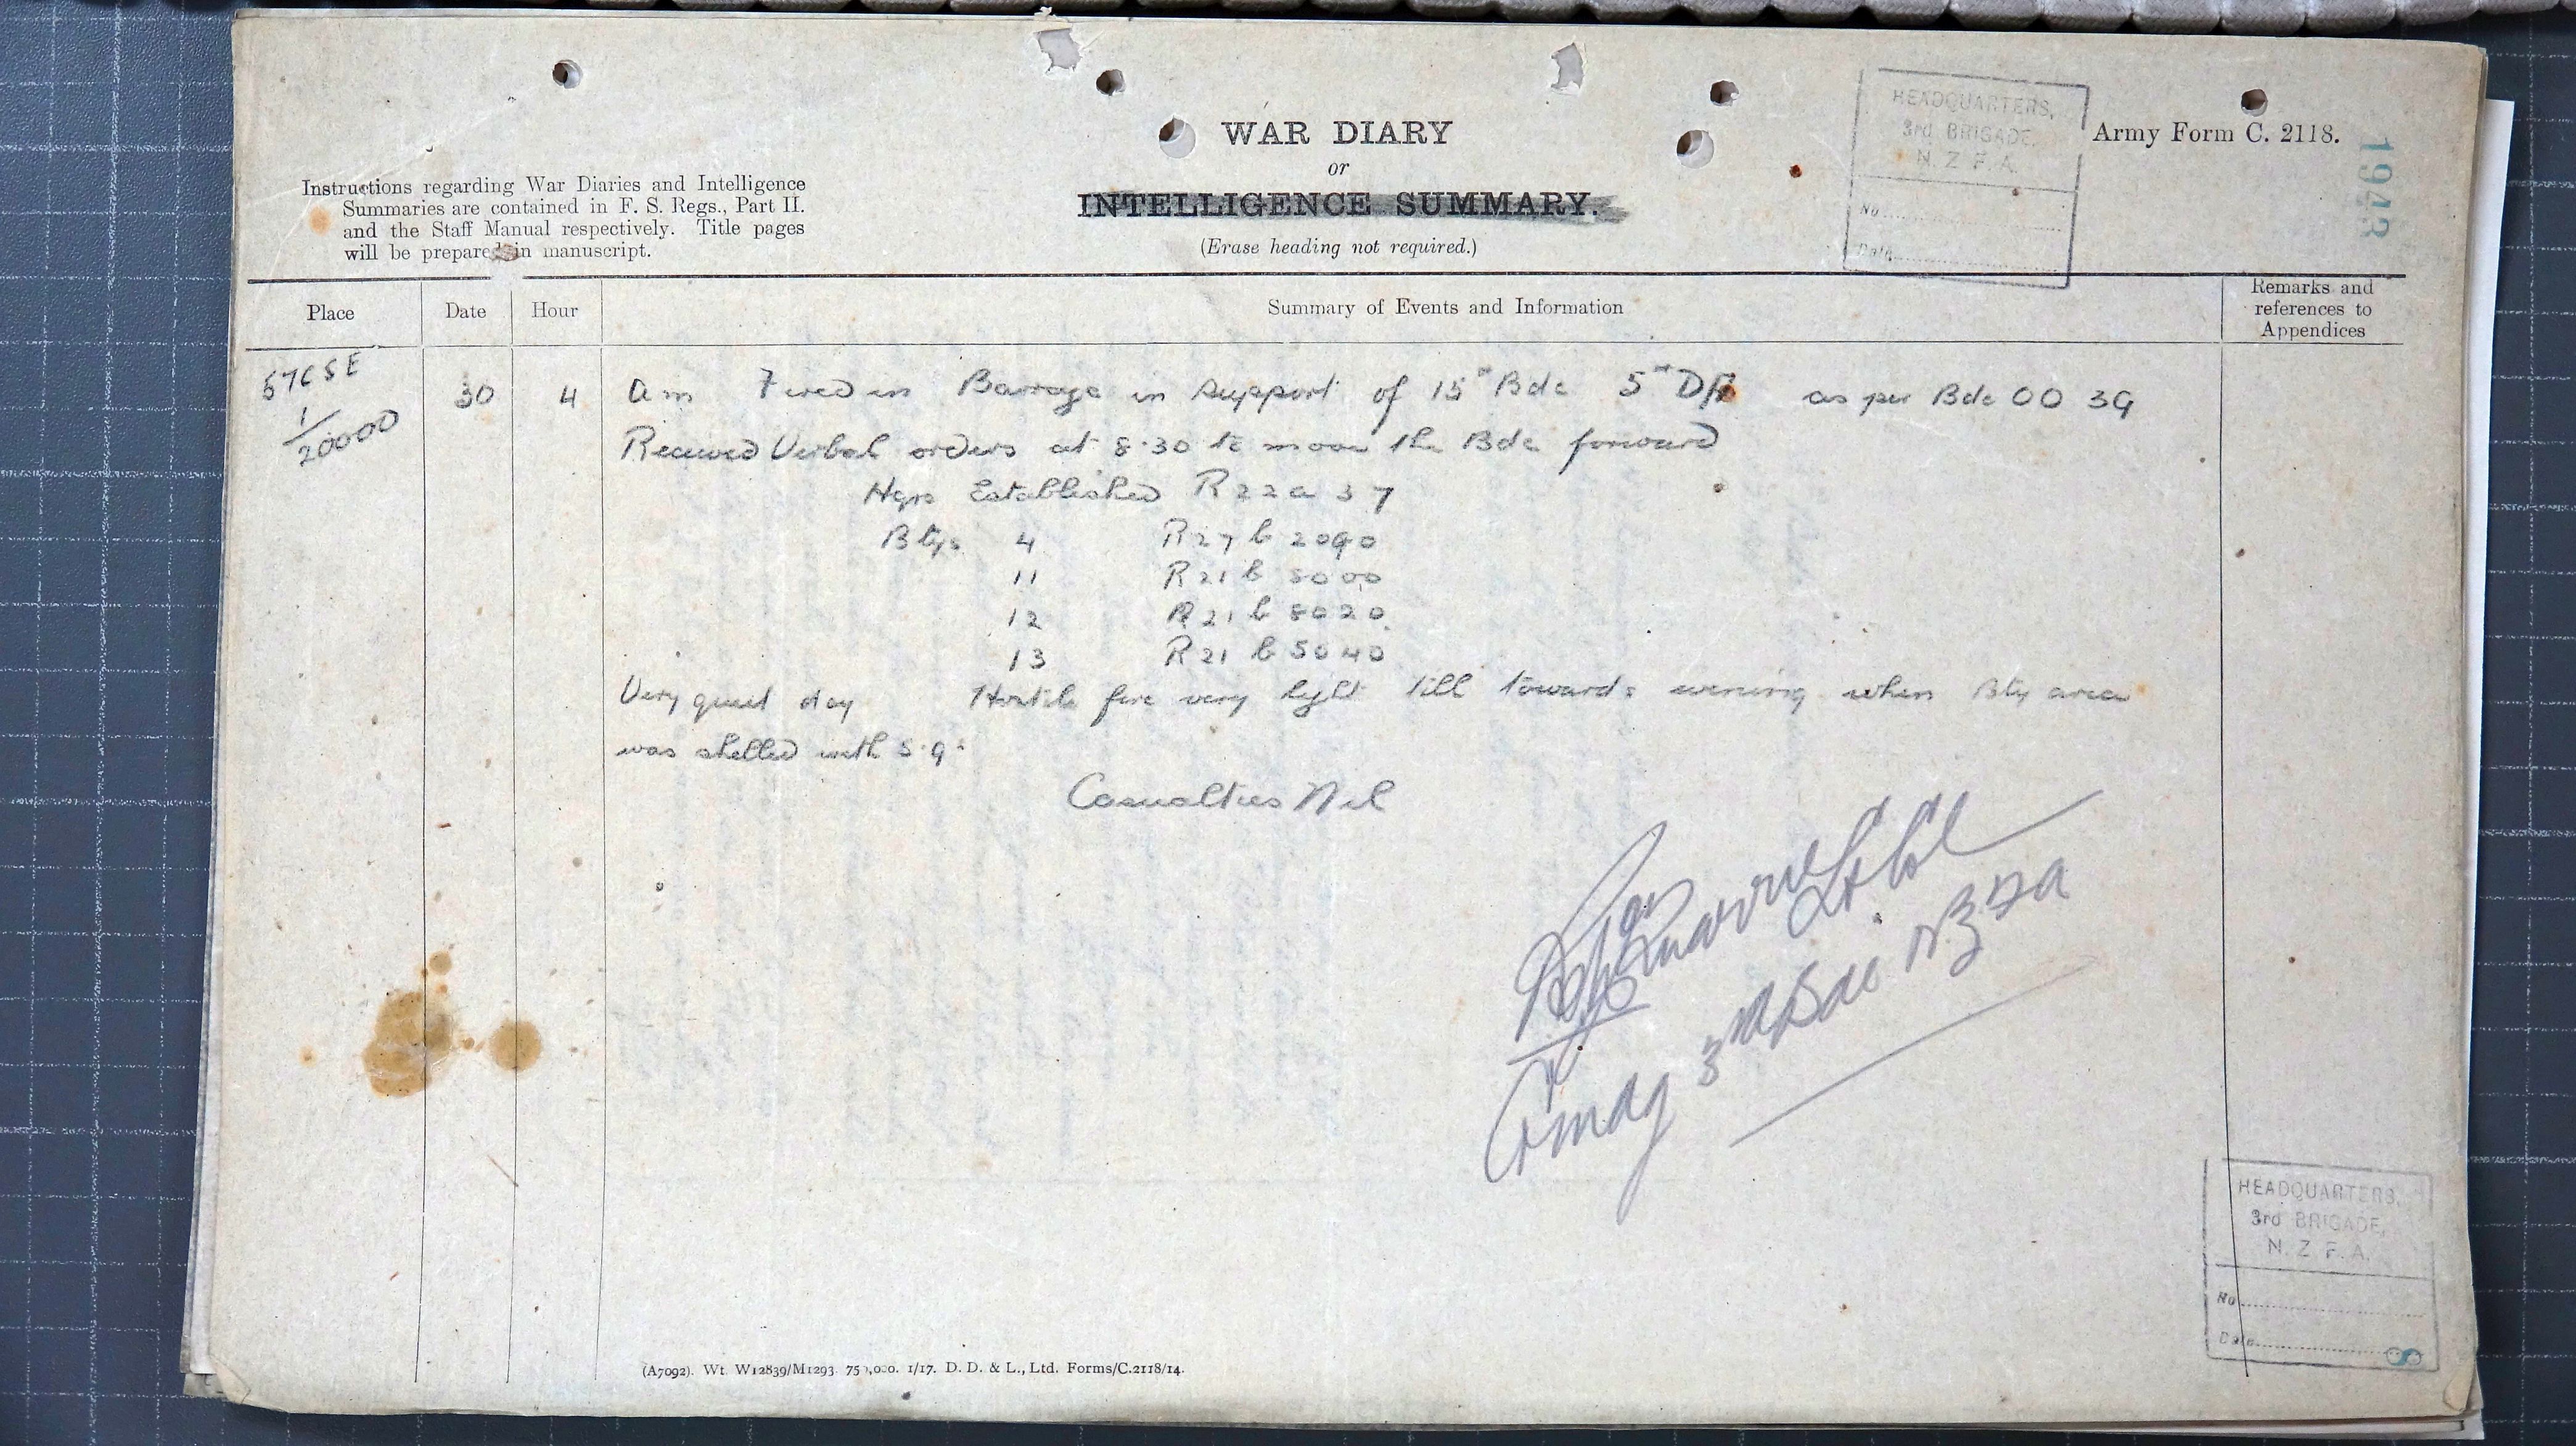 HEADQUARTERS,
3rd BRIGADE,
N. Z. F. A.
No
Date
Army Form C. 2118.
1943
WAR DIARY
or
INTELLIGENCE SUMMARY.
(Erase heading not required.)
Instructions regarding War Diaries and Intelligence
Summaries are contained in F. S. Regs., Part II.
and the Staff Manual respectively. Title pages
will be prepared in manuscript.
Place Date Hour Summary of Events and Information Remarks and references to Appendices
57C SE
1/20000
30 4 am Fired in Barrage in support of 15th Bde 5th as per Bde OO 39
Received Verbal orders at 8.30 to move the Bde forward
Hqrs Established R22a 37
Btys 4 R27b 2090
11 R21b 5000
12 R21b 8020
13 R21b 5040
Very quiet day Hostile fire very light till towards evening when Bty area
was shelled with 5.9s
Casualties Nil
Lt Col
Cmdg 3rd Bde NZFA
HEADQUARTERS,
3rd BRIGADE,
N. Z. F. A.
No
Date
8
(A7092). Wt. W12839/M1293. 750,000. 1/17. D. D. & L., Ltd. Forms/C.2118/14.